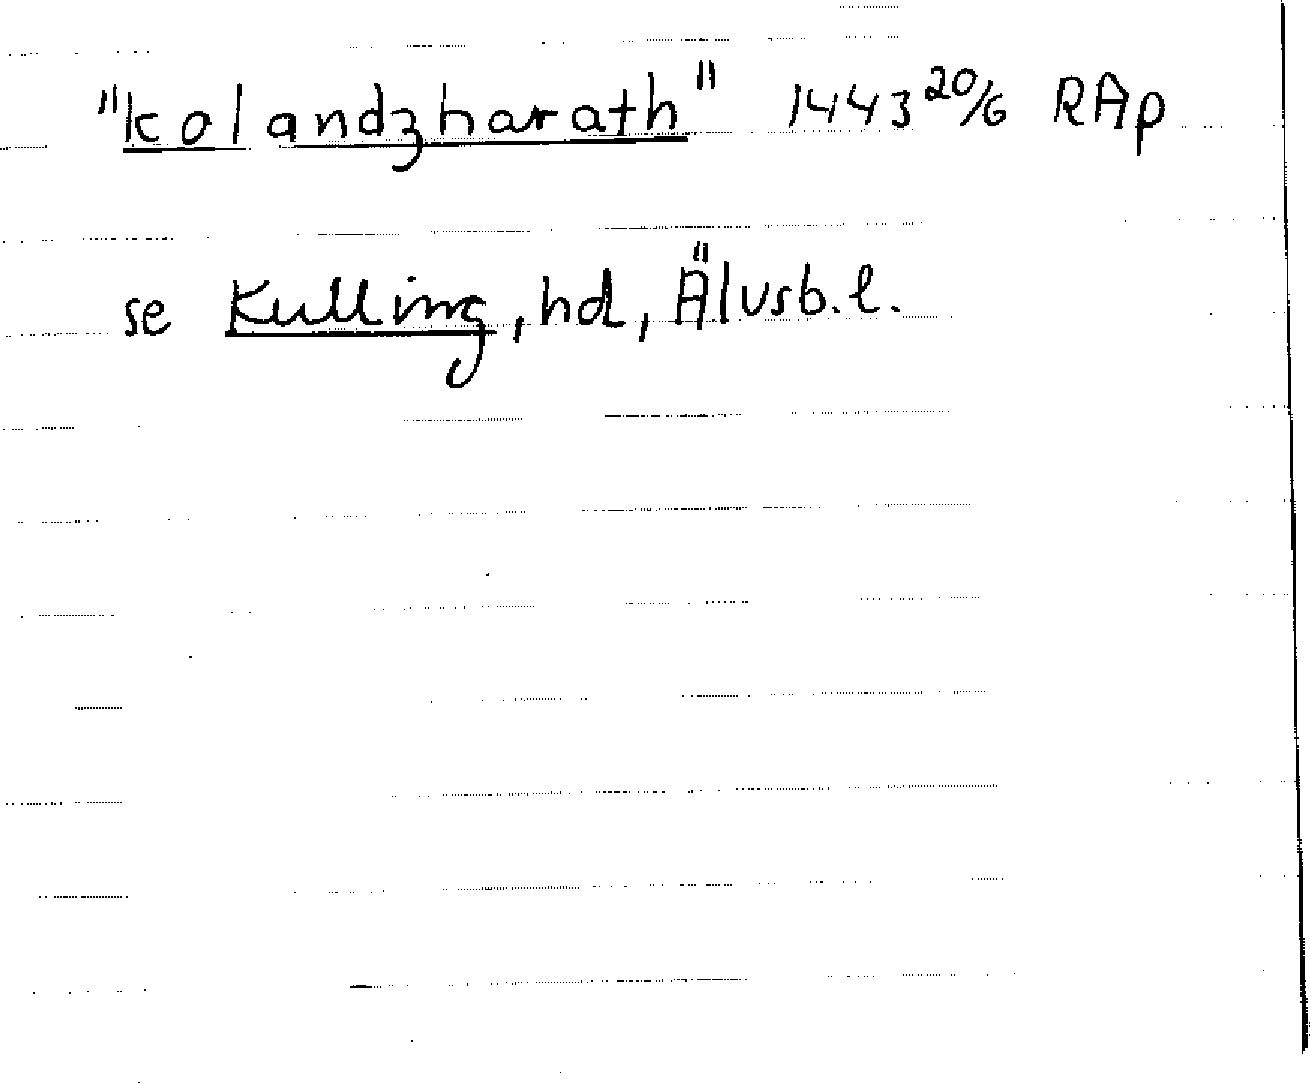 "kolandzharath" 1443 20/6 RAp
se Kulling, hd, Älvsb.l.